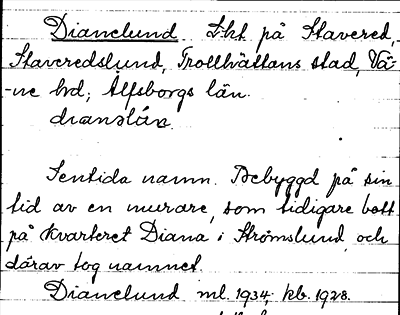 Dianelund Lht på Stavered,
Staveredslund, Trollhättans stad, Vä-
-ne hd; Älfsborgs län.
dianəlún.
Sentida namn. Bebyggd på sin
tid av en murare, som tidigare bott
på kvarteret Diana i Strömslund, och
därav tog namnet.
Dianelund ml. 1934, kb. 1928.